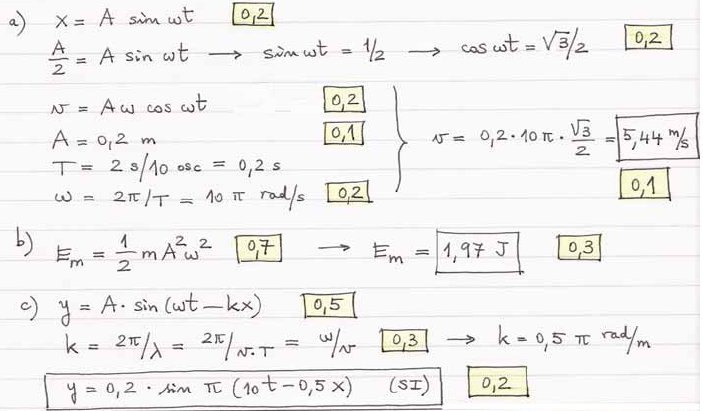 a) x = A sin ωt 0,2
A/2 = A sin ωt → sin ωt = 1/2 → cos ωt = √3/2 0,2
v = Aω cos ωt 0,2
A = 0,2 m 0,1
v = 0,2·10π·√3/2 = 5,44 m/s
T = 2 s/10 osc = 0,2 s
ω = 2π/T = 10 π rad/s 0,2
0,1
b) Em = 1/2 m A²ω² 0,7 → Em = 1,97 J 0,3
c) y = A· sin (ωt – kx) 0,5
k = 2π/λ = 2π/v.T = ω/v 0,3 → k = 0,5 π rad/m
y = 0,2 · sin π (10t – 0,5 x) (SI) 0,2